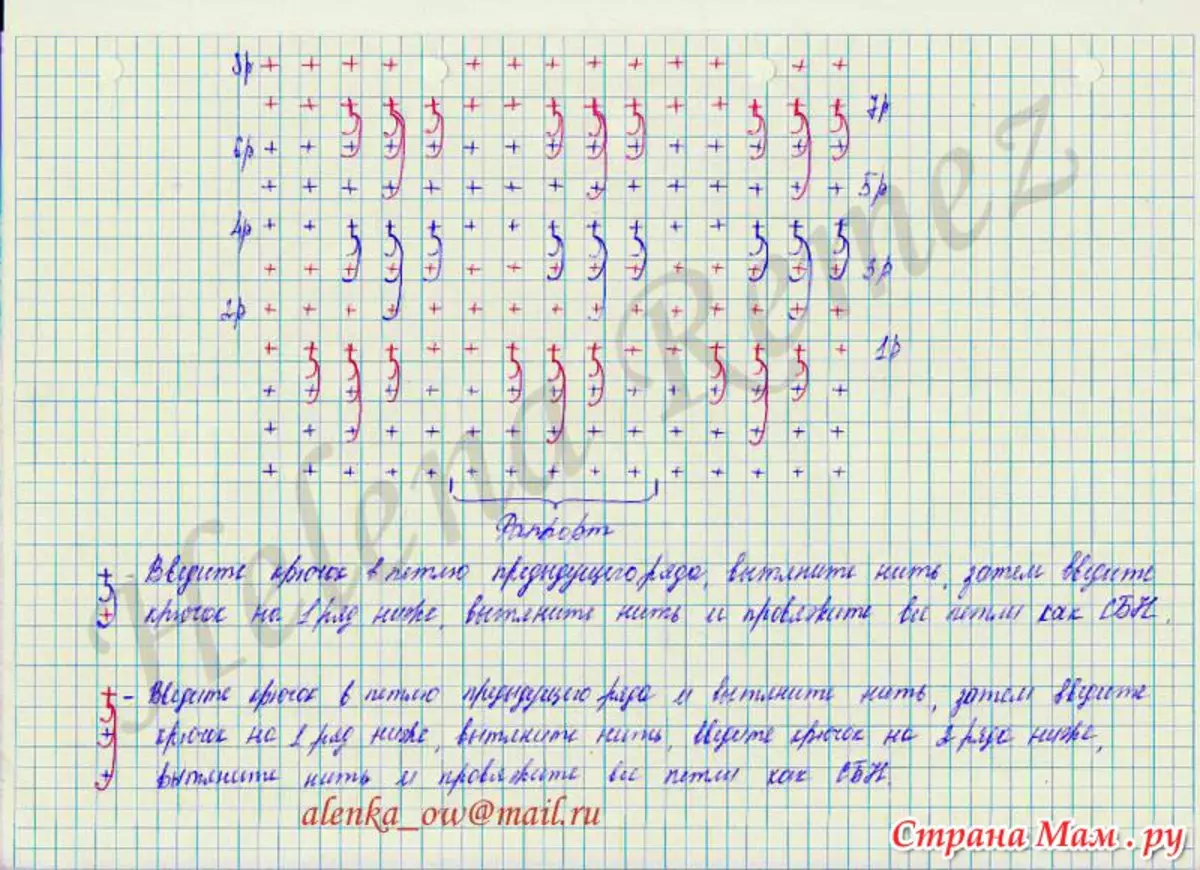 8р
7р
6р
5р
4р
3р
2р
1р
Раппорт
- Введите крючок в петлю предыдущего ряда, вытяните нить, затем введите
крючок на 1 ряд ниже, вытяните нить и провяжите все петли как СБН.
- Введите крючок в петлю предыдущего ряда и вытяните нить, затем введите
крючок на 1 ряд ниже, вытяните нить, введите крючок на 2 ряда ниже,
вытяните нить и провяжите все петли как СБН.
alenka_ow@mail.ru
Helena Remez
Страна Мам.ру